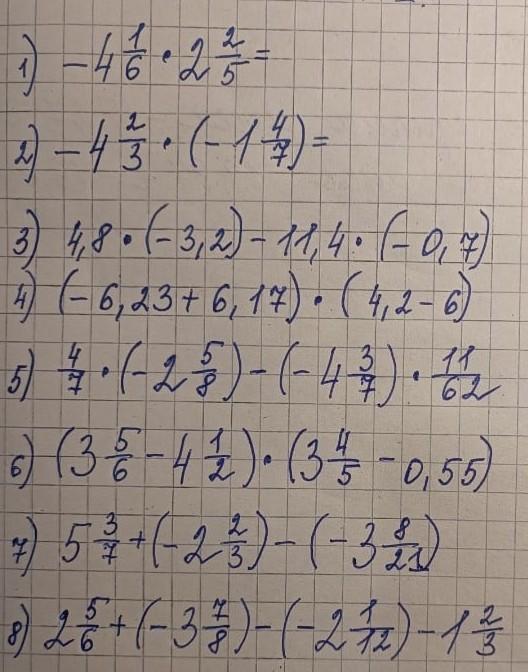 1) -4 1/6 · 2 2/5 =
2) -4 2/3 · (-1 4/7) =
3) 4,8 · (-3,2) - 11,4 · (-0,7)
4) (-6,23 + 6,17) · (4,2 - 6)
5) 4/7 · (-2 5/8) - (-4 3/7) · 11/62
6) (3 5/6 - 4 1/2) · (3 4/5 - 0,55)
7) 5 3/7 + (-2 2/3) - (-3 8/21)
8) 2 5/6 + (-3 7/8) - (-2 1/12) - 1 2/3